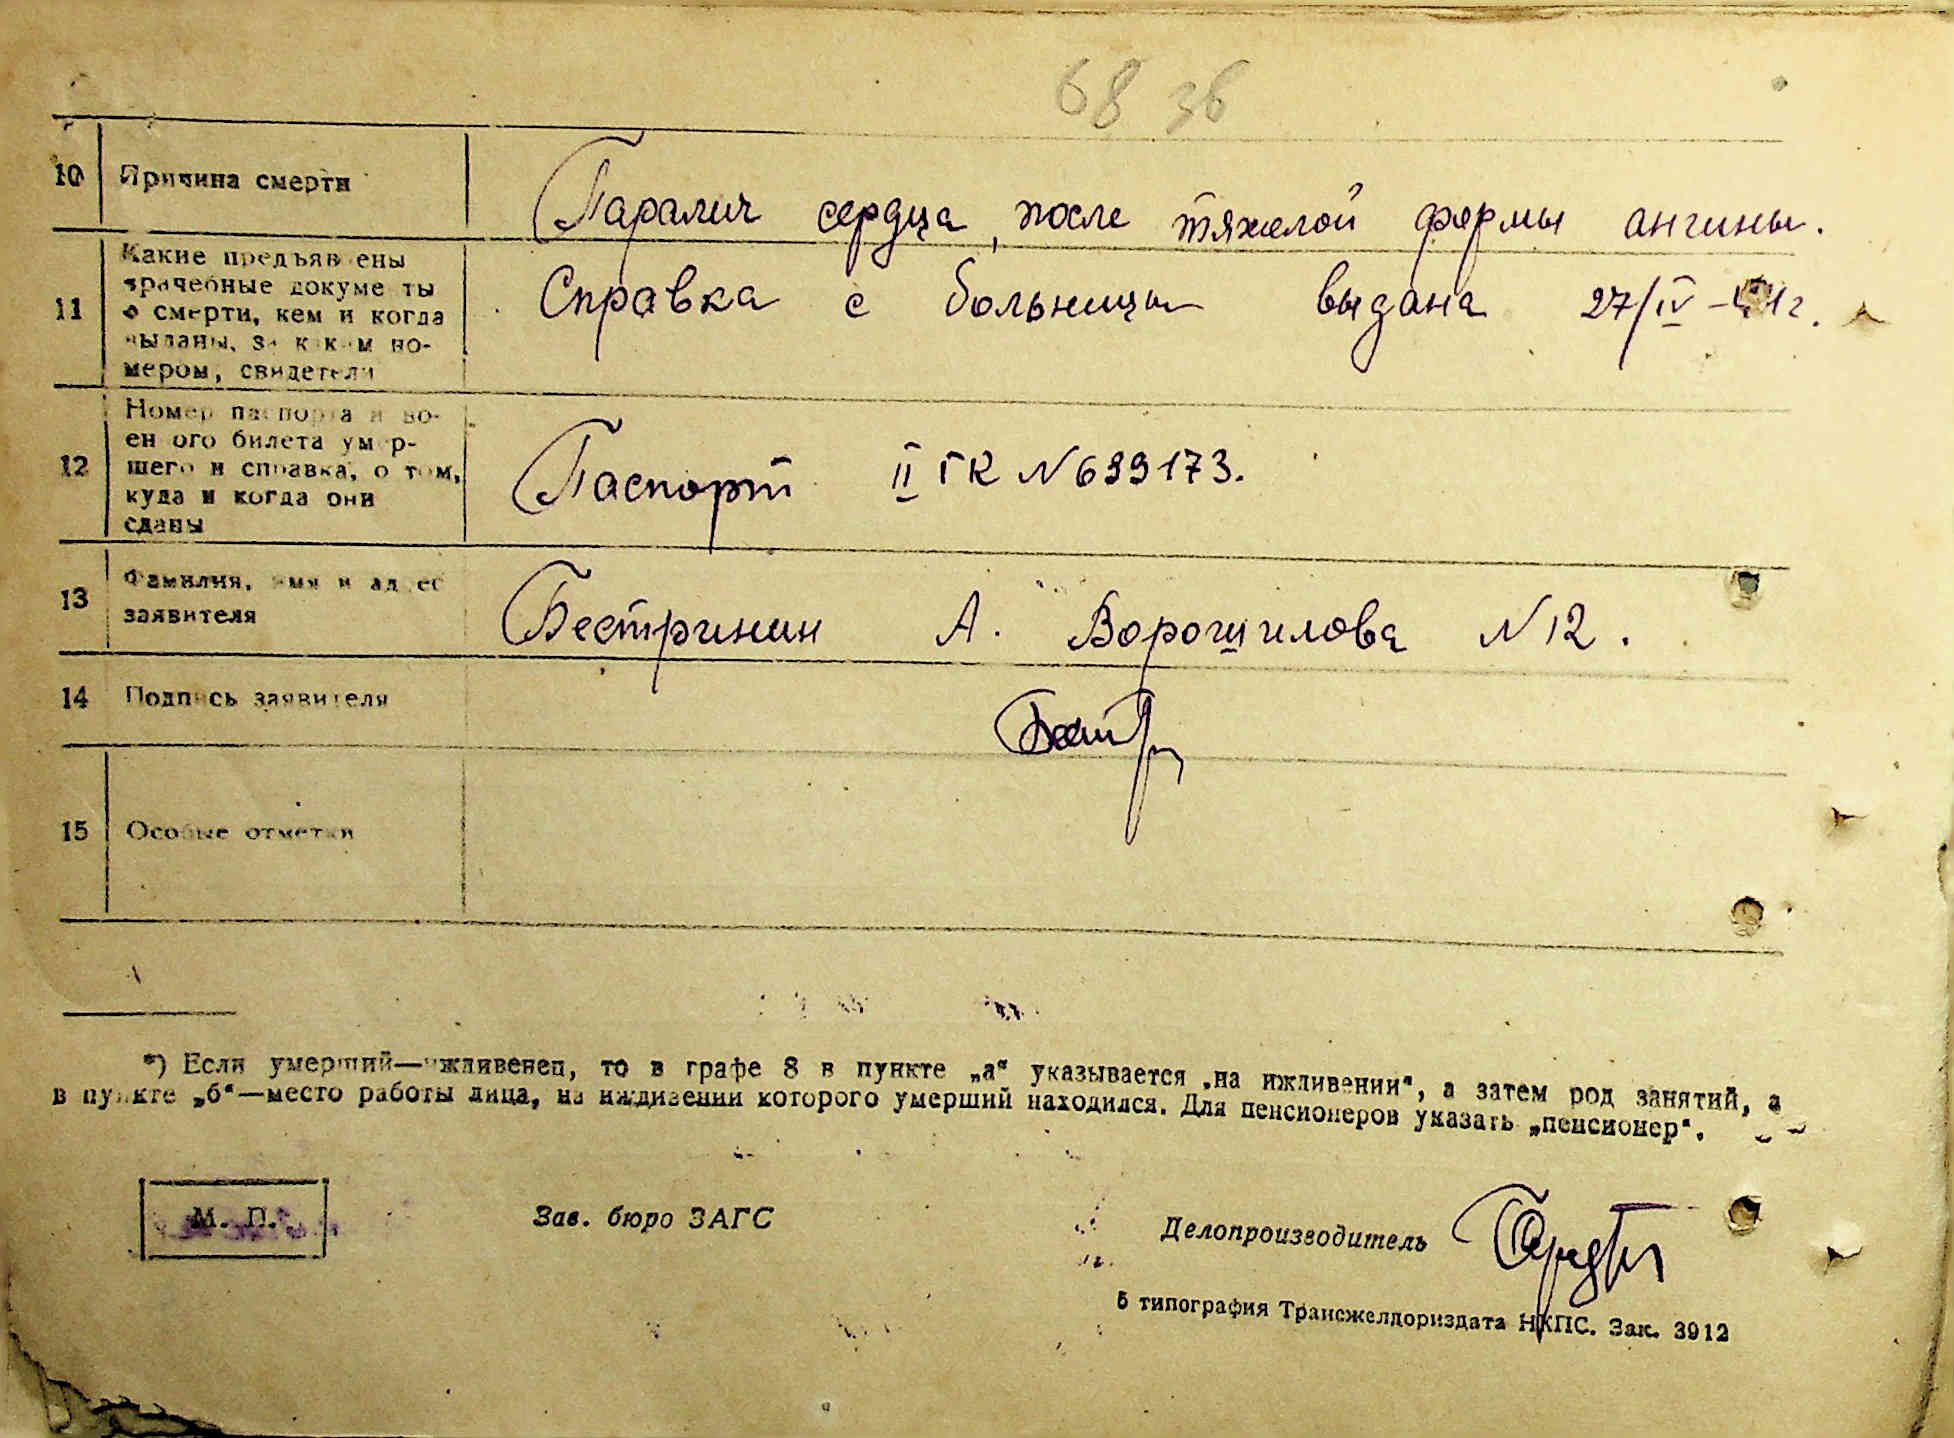 68 36
10 Причина смерти Паралич сердца, после тяжелой формы ангины.
11 Какие предъявлены
врачебные документы
о смерти, кем и когда
выданы, за каким но-
мером, свидетели
Справка с больницы выдана 27/IV - 41г.
12 Номер паспорта и во-
енного билета умер-
шего и справка, о том,
куда и когда они
сданы
Паспорт II ГК N 699173.
13 Фамилия, имя и адрес
заявителя
Бестринин А. Ворошилова N 12.
14 Подпись заявителя
15 Особые отметки
*) Если умерший—иждивенец, то в графе 8 в пункте „а“ указывается „на иждивении“, а затем род занятий, а
в пункте „б“—место работы лица, на иждивении которого умерший находился. Для пенсионеров указать „пенсионер“.
М. П.
Зав. бюро ЗАГС
Делопроизводитель
5 типография Трансжелдориздата НКПС. Зак. 3912